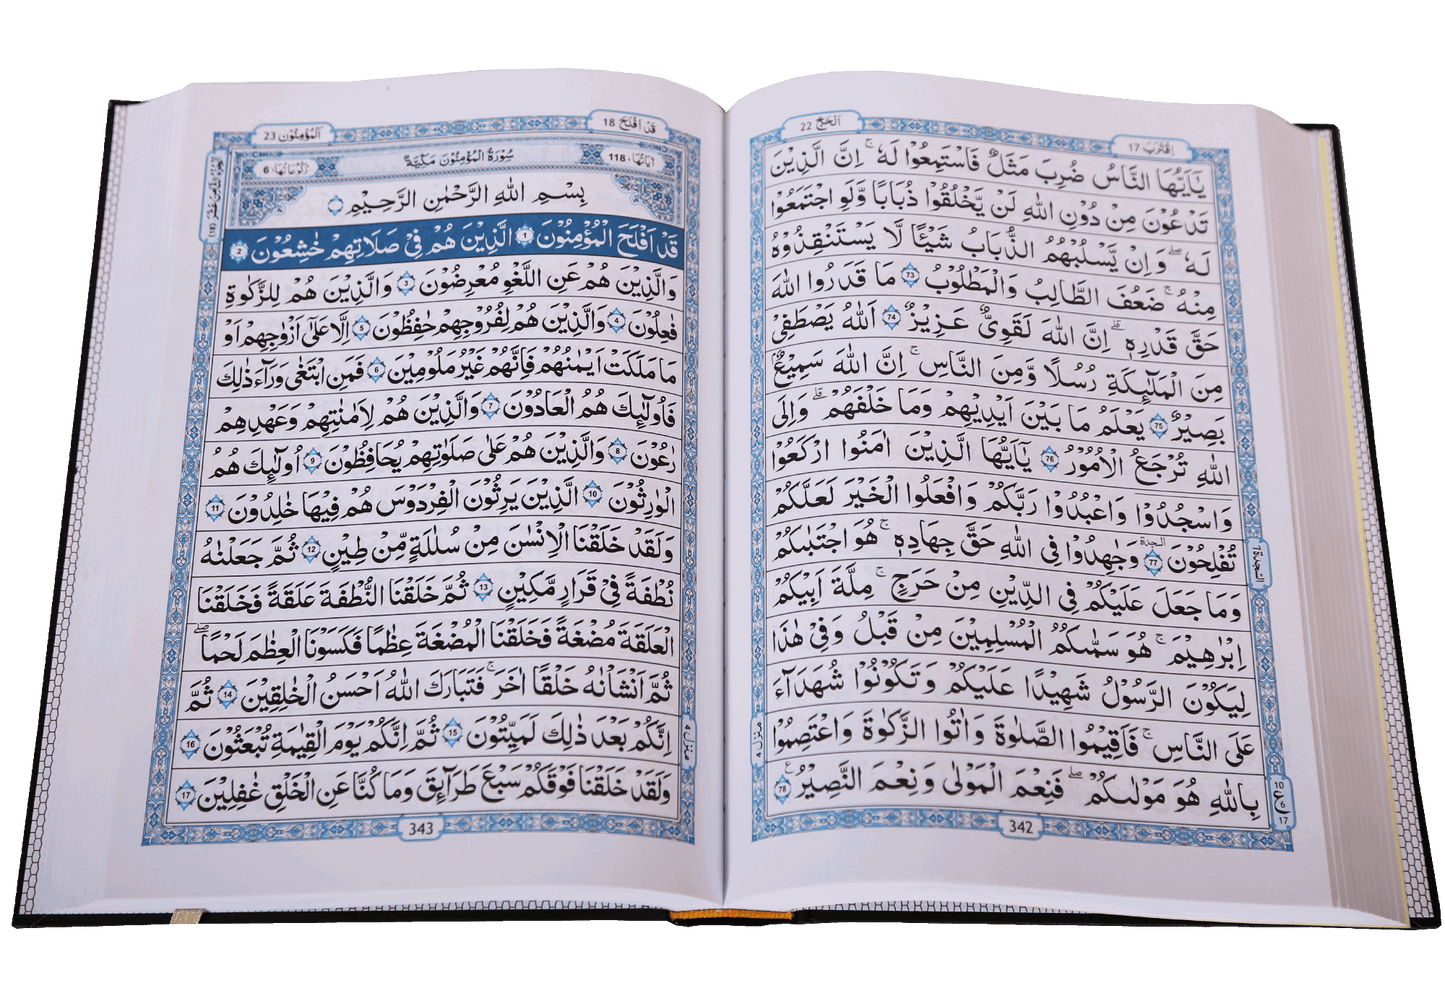 اَلْحَجّ 22
اِقْتَرَبَ 17
يٰۤاَيُّهَا النَّاسُ ضُرِبَ مَثَلٌ فَاسْتَمِعُوْا لَهٗ ؕ اِنَّ الَّذِيْنَ
تَدْعُوْنَ مِنْ دُوْنِ اللّٰهِ لَنْ يَّخْلُقُوْا ذُبَابًا وَّلَوِ اجْتَمَعُوْا
لَهٗ ؕ وَاِنْ يَّسْلُبْهُمُ الذُّبَابُ شَيْـًٔا لَّا يَسْتَنْقِذُوْهُ
مِنْهُ ؕ ضَعُفَ الطَّالِبُ وَالْمَطْلُوْبُ 73 مَا قَدَرُوا اللّٰهَ
حَقَّ قَدْرِهٖ ؕ اِنَّ اللّٰهَ لَقَوِيٌّ عَزِيْزٌ 74 اَللّٰهُ يَصْطَفِيْ
مِنَ الْمَلٰٓئِكَةِ رُسُلًا وَّمِنَ النَّاسِ ؕ اِنَّ اللّٰهَ سَمِيْعٌۢ
بَصِيْرٌ 75 يَعْلَمُ مَا بَيْنَ اَيْدِيْهِمْ وَمَا خَلْفَهُمْ ؕ وَاِلَى
اللّٰهِ تُرْجَعُ الْاُمُوْرُ 76 يٰۤاَيُّهَا الَّذِيْنَ اٰمَنُوا ارْكَعُوْا
وَاسْجُدُوْا وَاعْبُدُوْا رَبَّكُمْ وَافْعَلُوا الْخَيْرَ لَعَلَّكُمْ
تُفْلِحُوْنَ 77 السجدة وَجٰهِدُوْا فِي اللّٰهِ حَقَّ جِهَادِهٖ ؕ هُوَ اجْتَبٰىكُمْ
السجدة ٦
وَمَا جَعَلَ عَلَيْكُمْ فِي الدِّيْنِ مِنْ حَرَجٍ ؕ مِلَّةَ اَبِيْكُمْ
اِبْرٰهِيْمَ ؕ هُوَ سَمّٰىكُمُ الْمُسْلِمِيْنَ مِنْ قَبْلُ وَفِيْ هٰذَا
لِيَكُوْنَ الرَّسُوْلُ شَهِيْدًا عَلَيْكُمْ وَتَكُوْنُوْا شُهَدَآءَ
عَلَى النَّاسِ ۚ فَاَقِيْمُوا الصَّلٰوةَ وَاٰتُوا الزَّكٰوةَ وَاعْتَصِمُوْا
منزل ٤
بِاللّٰهِ هُوَ مَوْلٰىكُمْ ۚ فَنِعْمَ الْمَوْلٰى وَنِعْمَ النَّصِيْرُ 78
10
ع
6
17
342
قَدْ اَفْلَحَ 18
اَلْمُؤْمِنُوْن 23
اٰيَاتُهَا 118
سُوْرَةُ الْمُؤْمِنُوْنَ مَكِّيَّةٌ
رُكُوْعَاتُهَا 6
بِسْمِ اللّٰهِ الرَّحْمٰنِ الرَّحِيْمِ
قَدْ اَفْلَحَ الْمُؤْمِنُوْنَ 1 الَّذِيْنَ هُمْ فِيْ صَلَاتِهِمْ خٰشِعُوْنَ 2
وَالَّذِيْنَ هُمْ عَنِ اللَّغْوِ مُعْرِضُوْنَ 3 وَالَّذِيْنَ هُمْ لِلزَّكٰوةِ
فٰعِلُوْنَ 4 وَالَّذِيْنَ هُمْ لِفُرُوْجِهِمْ حٰفِظُوْنَ 5 اِلَّا عَلٰٓى اَزْوَاجِهِمْ اَوْ
مَا مَلَكَتْ اَيْمَانُهُمْ فَاِنَّهُمْ غَيْرُ مَلُوْمِيْنَ 6 فَمَنِ ابْتَغٰى وَرَآءَ ذٰلِكَ
فَاُولٰٓئِكَ هُمُ الْعٰدُوْنَ 7 وَالَّذِيْنَ هُمْ لِاَمٰنٰتِهِمْ وَعَهْدِهِمْ
رٰعُوْنَ 8 وَالَّذِيْنَ هُمْ عَلٰى صَلَوٰتِهِمْ يُحَافِظُوْنَ 9 اُولٰٓئِكَ هُمُ
الْوٰرِثُوْنَ 10 الَّذِيْنَ يَرِثُوْنَ الْفِرْدَوْسَ هُمْ فِيْهَا خٰلِدُوْنَ 11
وَلَقَدْ خَلَقْنَا الْاِنْسٰنَ مِنْ سُلٰلَةٍ مِّنْ طِيْنٍ 12 ثُمَّ جَعَلْنٰهُ
نُطْفَةً فِيْ قَرَارٍ مَّكِيْنٍ 13 ثُمَّ خَلَقْنَا النُّطْفَةَ عَلَقَةً فَخَلَقْنَا
الْعَلَقَةَ مُضْغَةً فَخَلَقْنَا الْمُضْغَةَ عِظٰمًا فَكَسَوْنَا الْعِظٰمَ لَحْمًا
ثُمَّ اَنْشَاْنٰهُ خَلْقًا اٰخَرَ ؕ فَتَبَارَكَ اللّٰهُ اَحْسَنُ الْخٰلِقِيْنَ 14 ثُمَّ
اِنَّكُمْ بَعْدَ ذٰلِكَ لَمَيِّتُوْنَ 15 ثُمَّ اِنَّكُمْ يَوْمَ الْقِيٰمَةِ تُبْعَثُوْنَ 16
منزل ٤
وَلَقَدْ خَلَقْنَا فَوْقَكُمْ سَبْعَ طَرَآئِقَ وَمَا كُنَّا عَنِ الْخَلْقِ غٰفِلِيْنَ 17
343